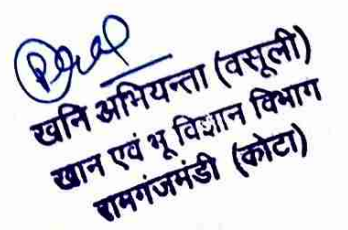 खनि अभियन्ता (वसूली)
खान एवं भू विज्ञान विभाग
रामगंजमंडी (कोटा)